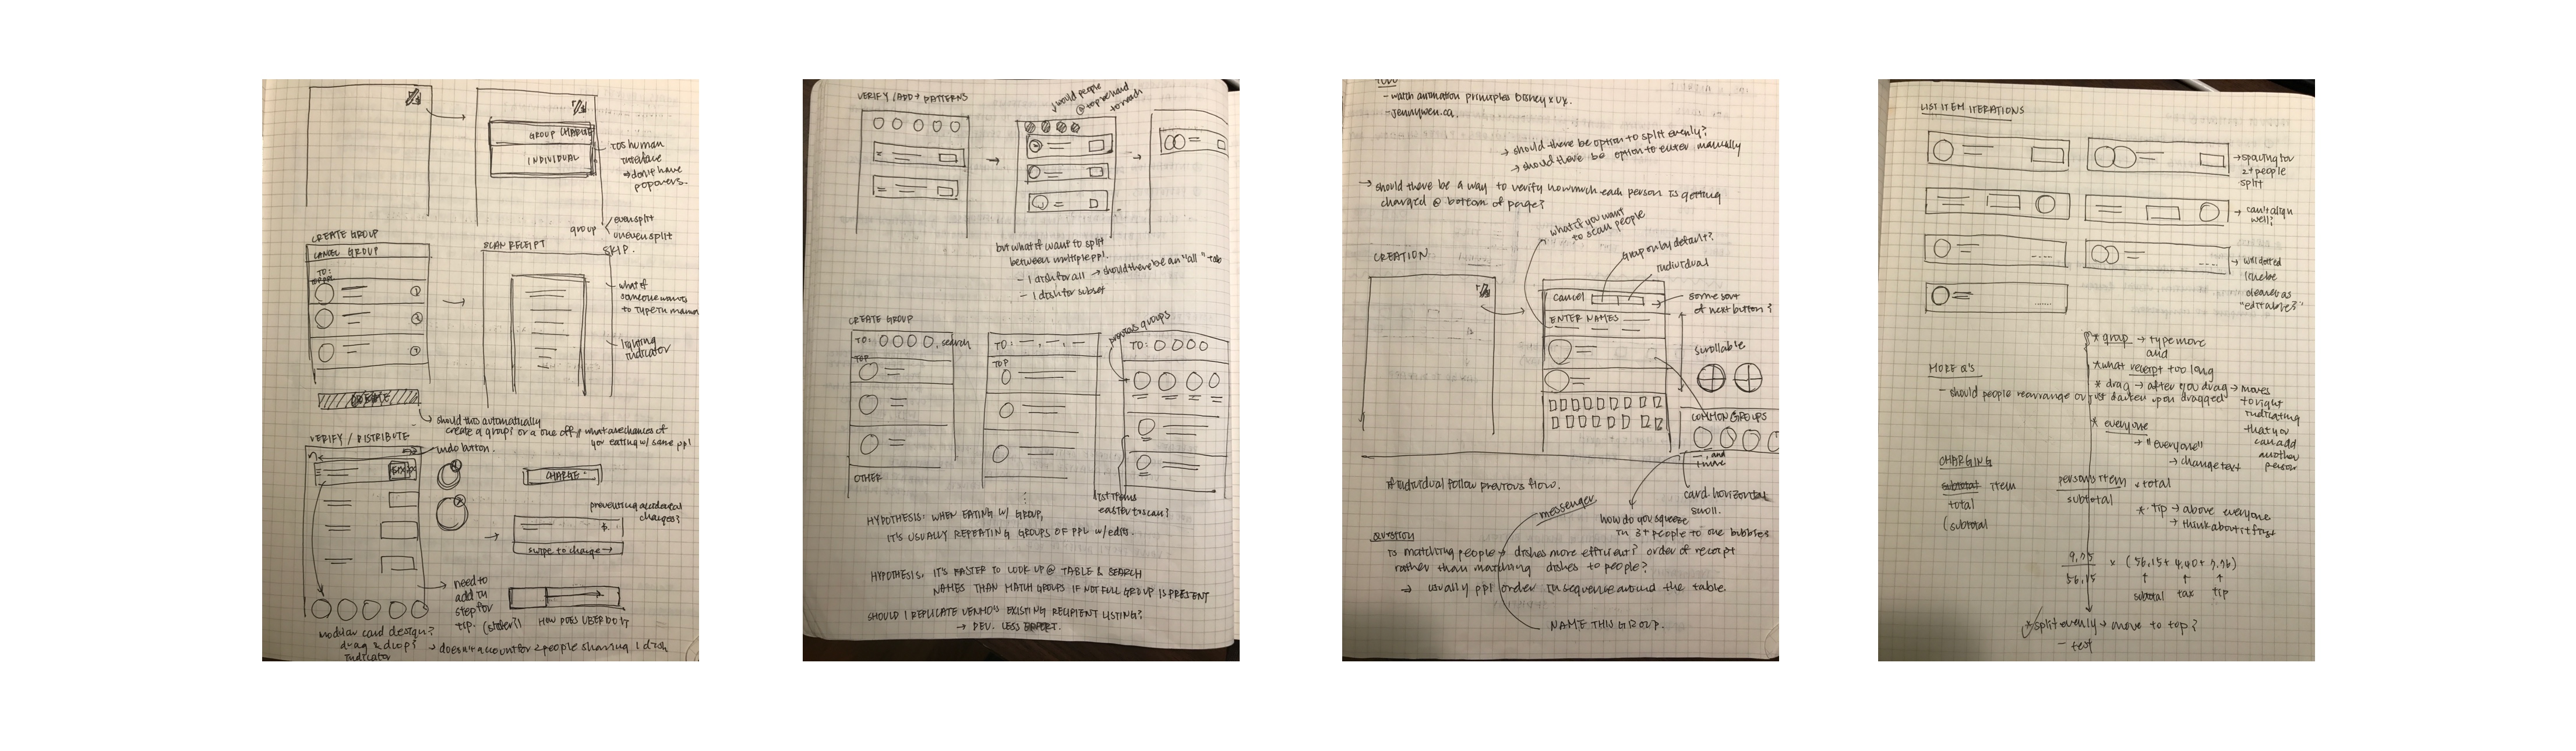 GROUP CHARGE
INDIVIDUAL
IOS human
interface
→ don't have
popovers.
group
even split
uneven split
CREATE GROUP
CANCEL GROUP
TO:
SCAN RECEIPT
SKIP.
what if
someone wants
to type in manual
lighting
indicator
CREATE
should this automatically
create a group? or a one off, what are chances of
you eating w/ same ppl
VERIFY / DISTRIBUTE
undo button.
CHARGE
preventing accidental
charges?
swipe to charge →
need to
add in
step for
tip. (slider?)
HOW DOES UBER DO IT
modular card design?
drag & drop?
indicator
→ doesn't account for 2 people sharing 1 dish
VERIFY / ADD + PATTERNS
should people
@ top be hard
to reach
but what if want to split
between multiple ppl.
- 1 dish for all → should there be an "all" tab
- 1 dish for subset
CREATE GROUP
previous groups
TO:
search
TOP
OTHER
TO:
TOP
TO:
list items
easier to scan?
HYPOTHESIS: WHEN EATING W/ GROUP,
IT'S USUALLY REPEATING GROUPS OF PPL W/ edits.
HYPOTHESIS, IT'S FASTER TO LOOK UP @ TABLE & SEARCH
NAMES THAN MATCH GROUPS IF NOT FULL GROUP IS PRESENT
SHOULD I REPLICATE VENMO'S EXISTING RECIPIENT LISTING?
→ DEV. LESS EFFORT.
TODO
- watch animation principles Disney x UX.
- jennywen.ca.
→ should there be option to split evenly?
→ should there be option to enter manually
→ should there be a way to verify how much each person is getting
charged @ bottom of page?
what if you want
to scan people
CREATION
Group only by default?
individual
Cancel
ENTER NAMES
some sort
of next button?
scrollable
COMMON GROUPS
-, and
1 more
card horizontal
scroll.
* individual follow previous flow.
messenger
how do you squeeze
in 3+ people to one bubbles
QUESTION
Is matching people → dishes more efficient? order of receipt
rather than matching dishes to people?
→ usually ppl order in sequence around the table.
NAME THIS GROUP.
LIST ITEM ITERATIONS
→ spacing for
2+ people
split
→ can't align
well?
→ will dotted
line be
clear as
"editable?"
MORE Q'S
- should people rearrange or just darken upon dragged
* group → type more
and
* what receipt too long
* drag → after you drag → moves
to right
indicating
that you
can add
another
person
* everyone
→ "everyone"
→ change text
CHARGING
subtotal item
total
(subtotal
person's item
subtotal
× total
* tip → above everyone
→ think about it first
56.15
× (56.15 + 4.40 +
subtotal
tax
tip
* split evenly → move to top?
- test